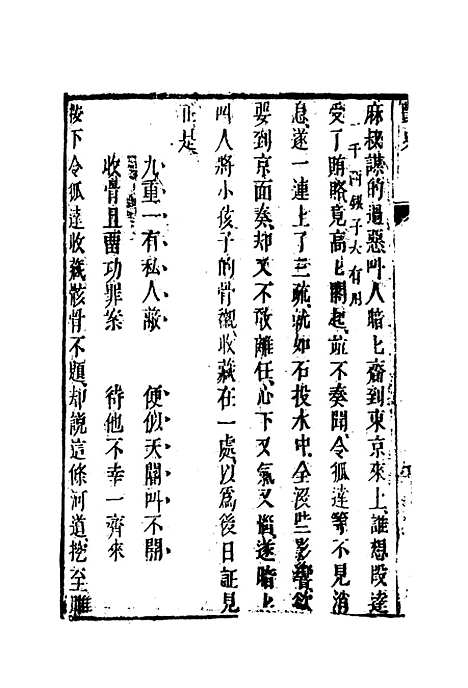 麻叔謀的過惡叫人暗上齎到東京來上誰想段達
千兩銀子大有用
受了賄賂竟高上閣起竝不奏聞令狐達等不見消
息遂一連上了三疏就如石投水中全沒些影響欲
要到京面奏却又不敢離任心下又氣又惱遂暗上
叫人將小孩子的骨襯收藏在一處以爲後日証見
正是
九重一有私人蔽 便似天關叫不開
收骨且畱功罪案 待他不幸一齊來
按下令狐達收藏骸骨不題却說這條河道挖至雕